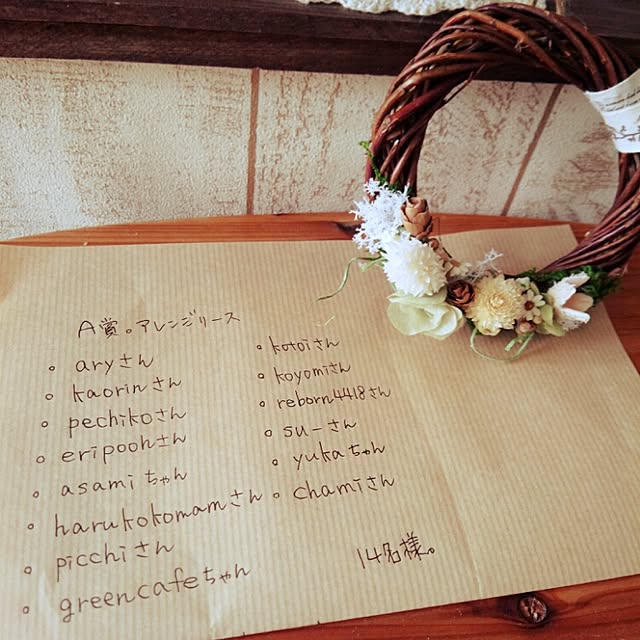 A賞。アレンジリース
。aryさん
。kaorinさん
。pechikoさん
。eripoohさん
。asamiちゃん
。harukokomamさん
。picchiさん
。greencafeちゃん
。kotoiさん
。koyomiさん
。reborn4418さん
。su-さん
。yukaちゃん
。chamiさん
14名様。